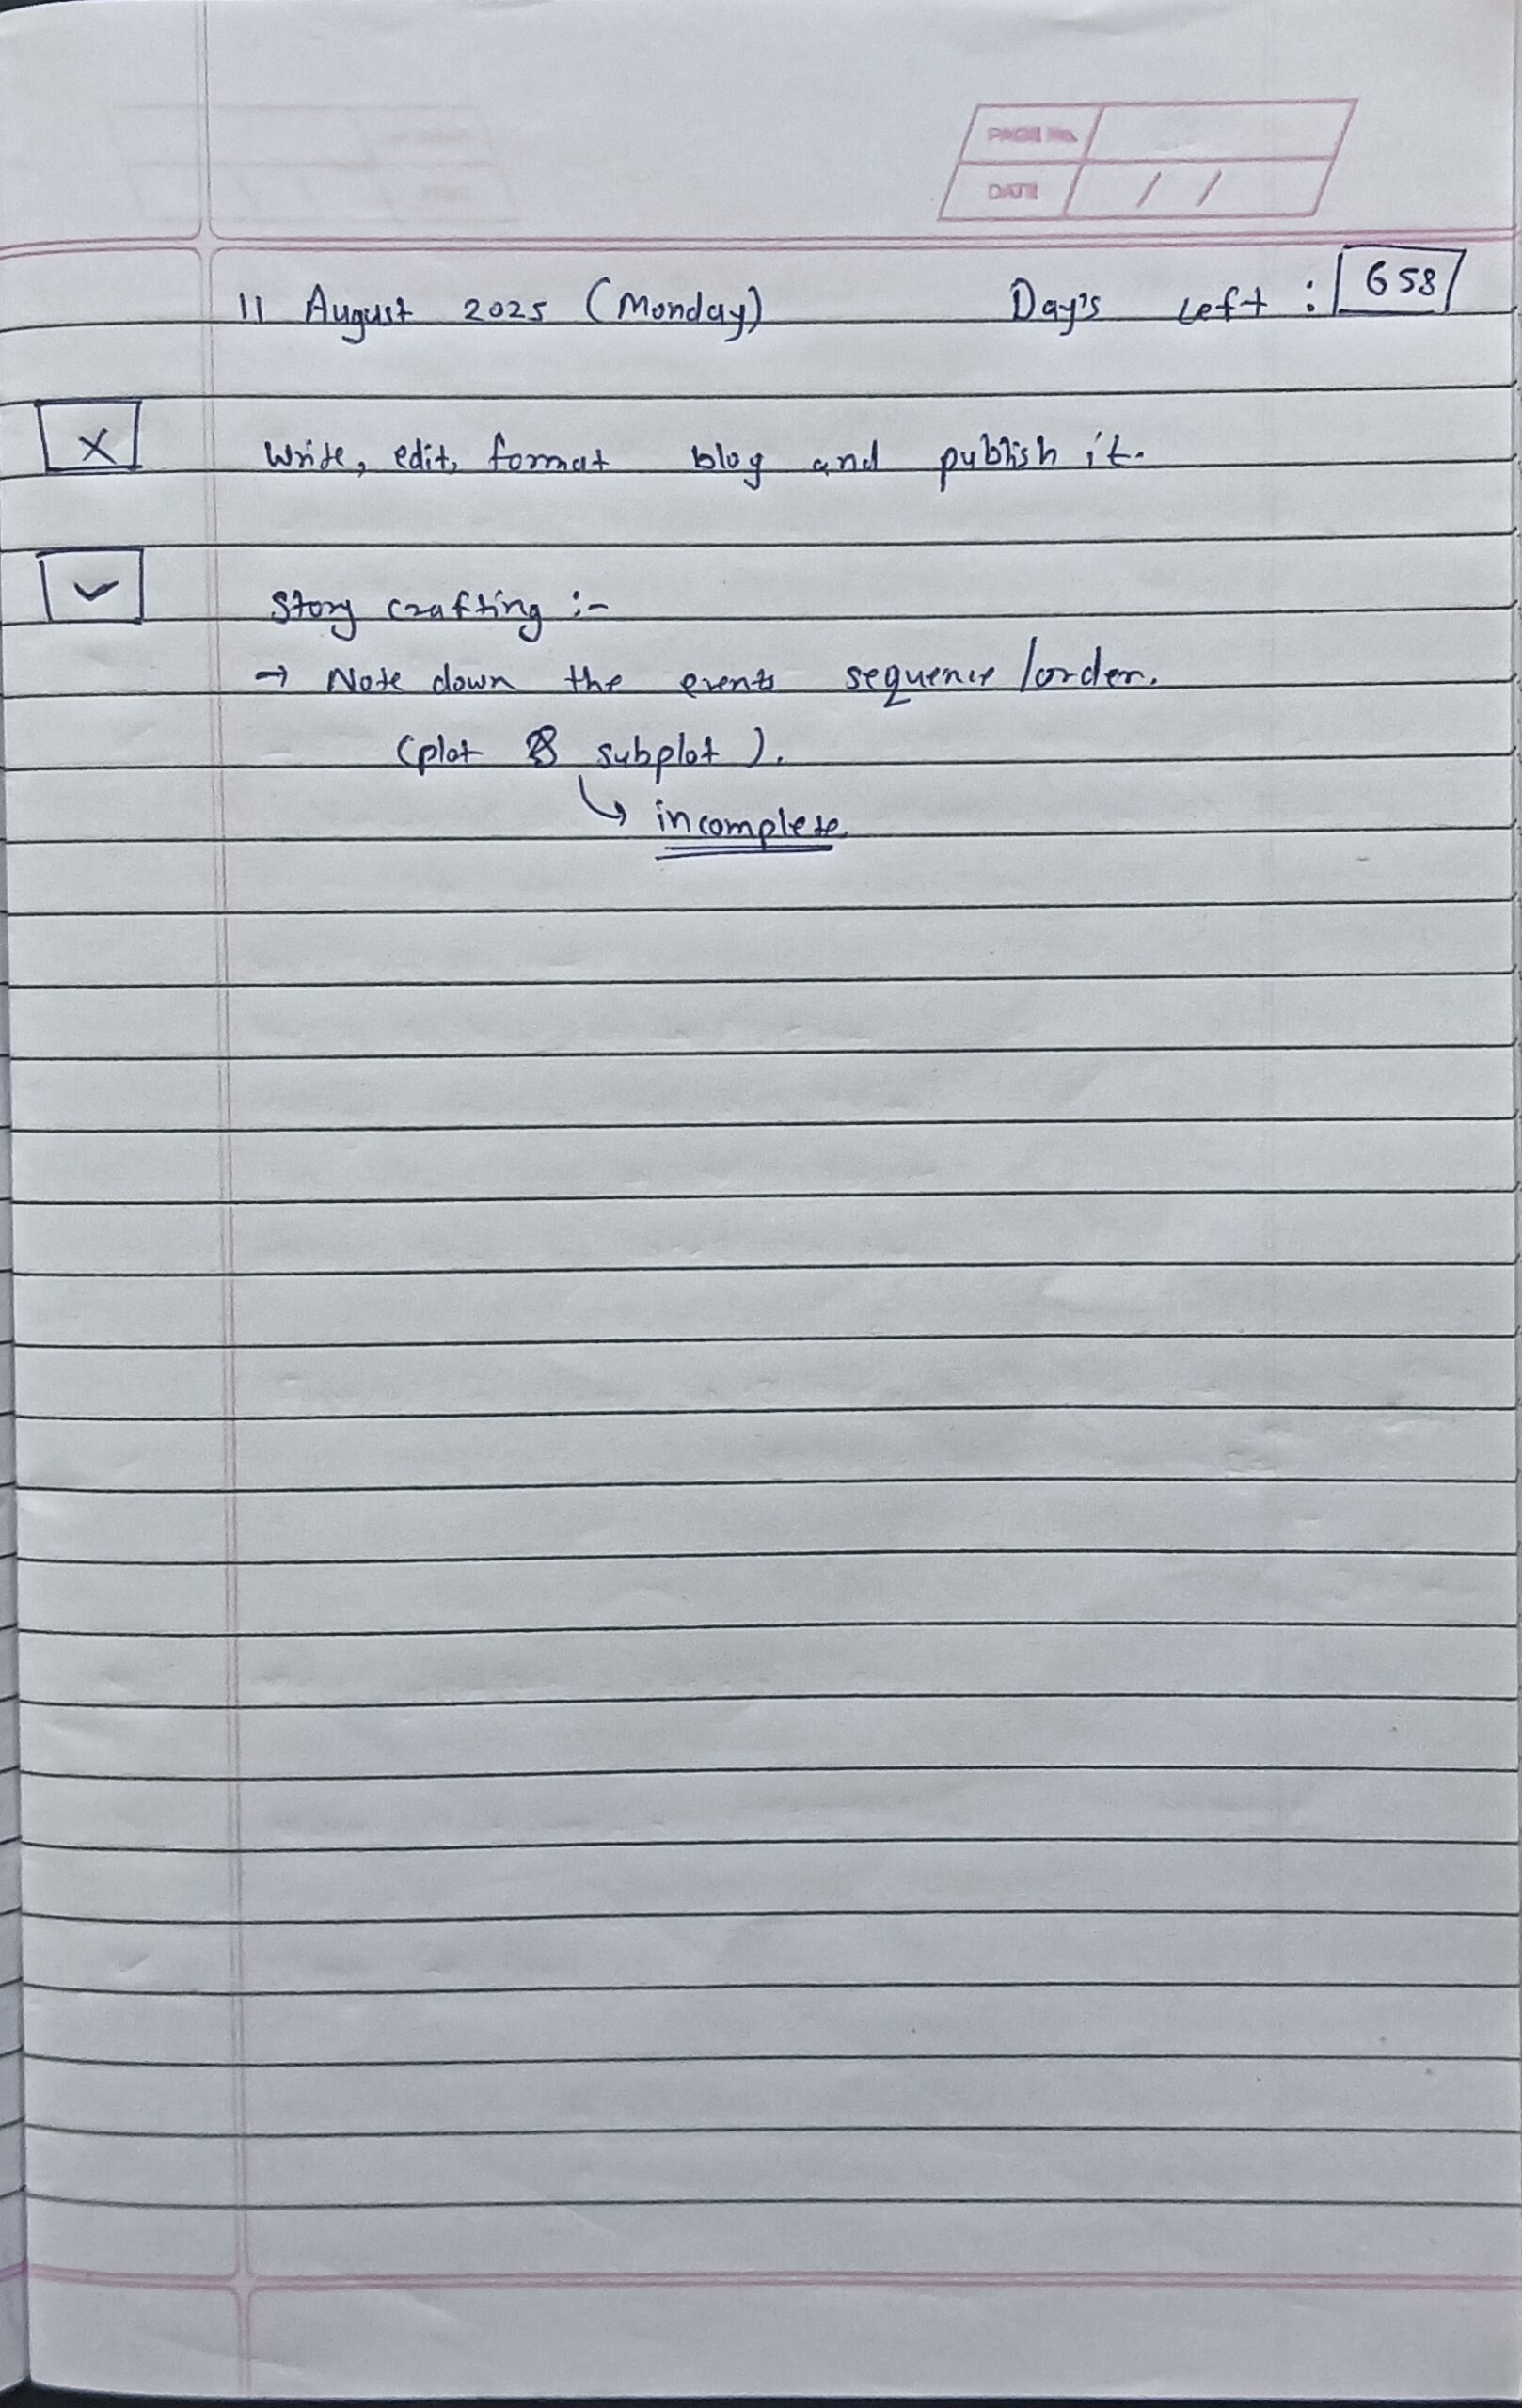 PAGE No.
DATE / /
11 August 2025 (Monday) Day's Left : 658
X Write, edit, format blog and publish it.
✓ Story crafting :-
→ Note down the events sequence / order.
(plot & subplot ).
↳ incomplete